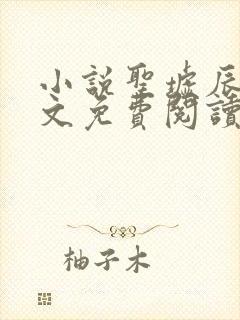 小說聖墟辰
文免費閱讀
柚子木